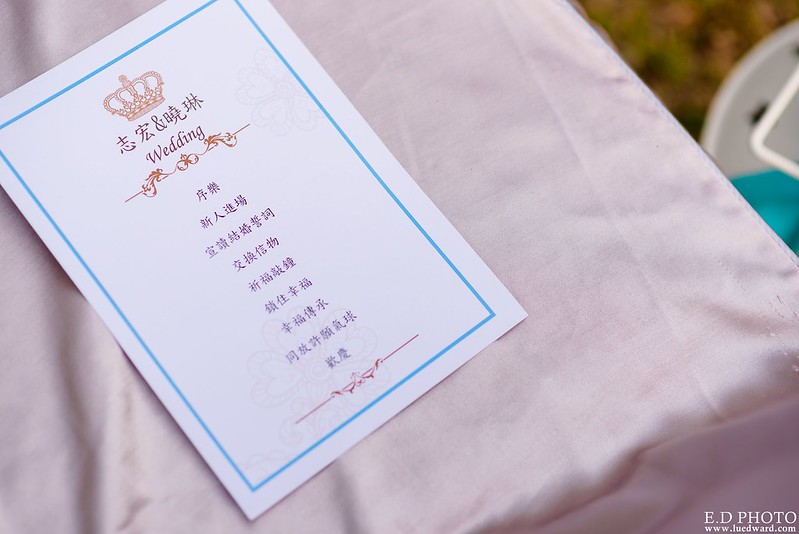 志宏&曉琳
Wedding
序樂
新人進場
宣讀結婚誓詞
交換信物
祈福敲鐘
鎖住幸福
幸福傳承
同放許願氣球
歡慶
E.D PHOTO
www.luedward.com